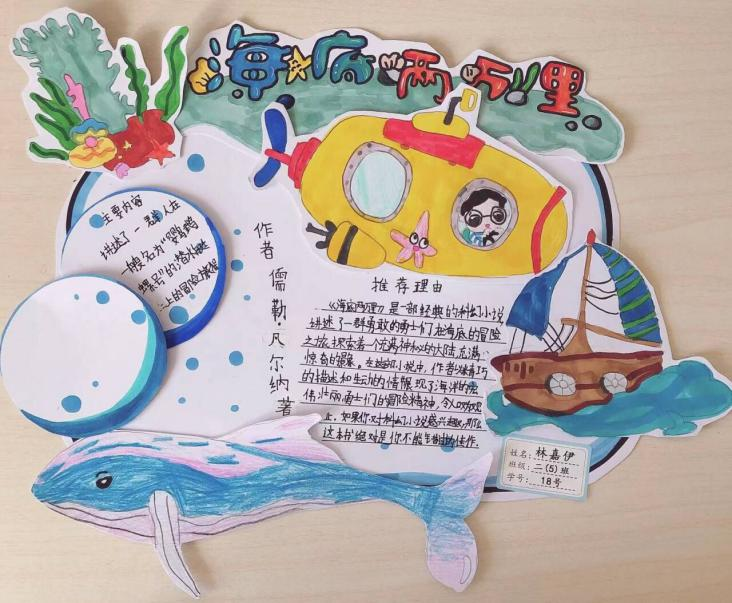 海底两万里
主要内容
讲述了一群人在
一艘名为“鹦鹉
螺号”的潜水艇
上的冒险故事
作者 儒勒·凡尔纳 著
推荐理由
《海底两万里》是一部经典的科幻小说
讲述了一群勇敢的勇士们在海底的冒险
之旅，探索着一个充满神秘的大陆，充满
惊奇的景象。在这部小说中，作者以精巧
的描述和生动的情节，现了海洋的宏
伟壮丽，勇士们的冒险精神，令人
上，如果你对科幻小说感兴趣，那么
这本书绝对是你不能错过的佳作。
姓名：林嘉伊
班级：二(5)班
学号：18号